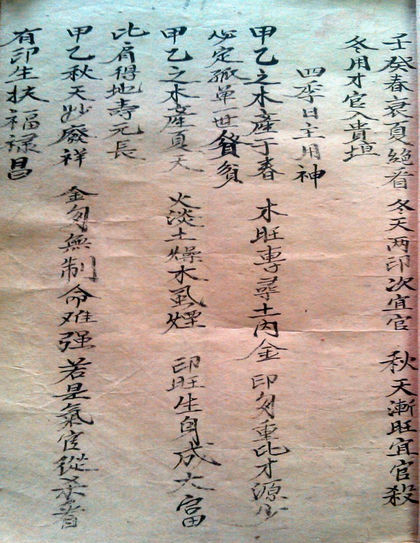 壬癸春衰夏絕看 冬天两印次宜官 秋天漸旺宜官殺
冬用才官入貴垣
四季日主用神
甲乙之木產于春 木旺專尋土內金 印多重比才源少
必定孤单世貧
甲乙之木產夏天 火淡土燥木虱煙 印旺生身成大富
比肩得地壽元長
甲乙秋天妙廢祥 金多無制命难强 若是氣官從杀看
有印生扶福禄昌